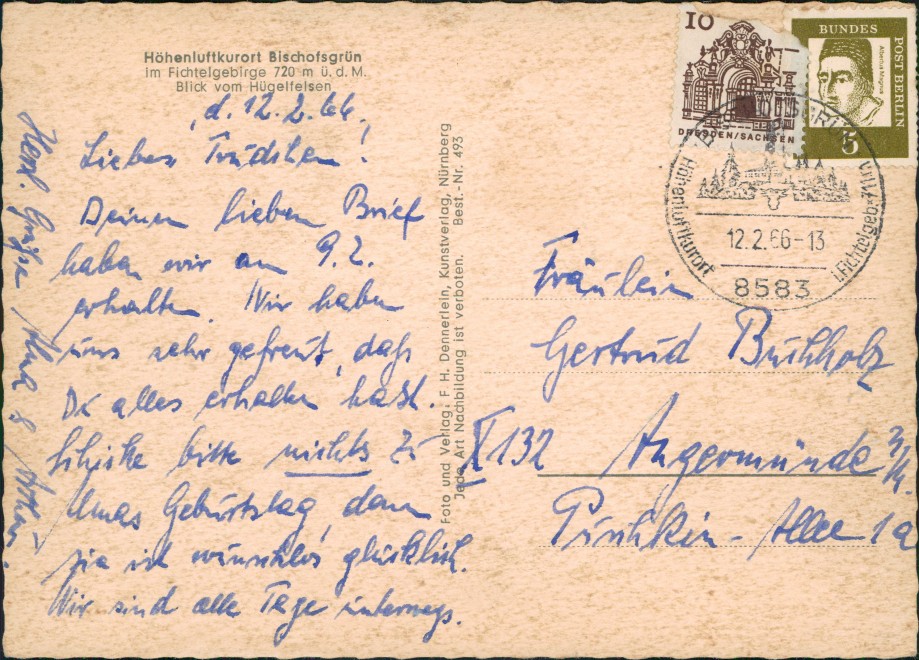 Höhenluftkurort Bischofsgrün
im Fichtelgebirge 720 m ü. d. M.
Blick vom Hügelfelsen
d. 12.2.66.
Liebes Trudchen!
Deinen lieben Brief
haben wir am 9.2.
erhalten. Wir haben
uns sehr gefreut, daß
Du alles erhalten hast.
Schicke bitte nichts zu
Umas Geburtstag, denn
sie ist wunschlos glücklich.
Wir sind alle Tage unterwegs.
Herzl. Grüße
Foto und Verlag: F. H. Dennerlein, Kunstverlag, Nürnberg
Jede Art Nachbildung ist verboten. Best.-Nr. 493
10
DRESDEN/SACHSEN
BUNDES
POST BERLIN
Albertus Magnus
5
Höhenluftkurort
i. Fichtelgeb.
12.2.66-13
8583
Fräulein
Gertrud Buchholz
X 132 Angermünde
Puschkin-Allee 1a